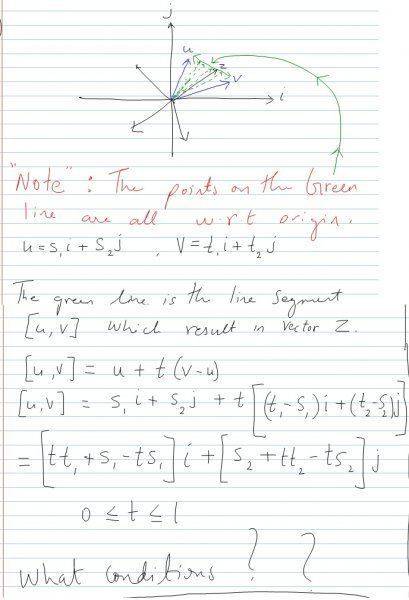 j
u
z
v
i
"Note" : The points on the Green
line are all w.r.t origin.
u = s₁i + s₂j , V = t₁i + t₂j
The green line is the line segment
[u,v] which result in vector Z.
[u,v] = u + t(v-u)
[u,v] = s₁i + s₂j + t[(t₁-s₁)i+(t₂-s₂)j]
= [tt₁+s₁-ts₁]i + [s₂+tt₂-ts₂]j
0 ≤ t ≤ 1
What conditions ? ?